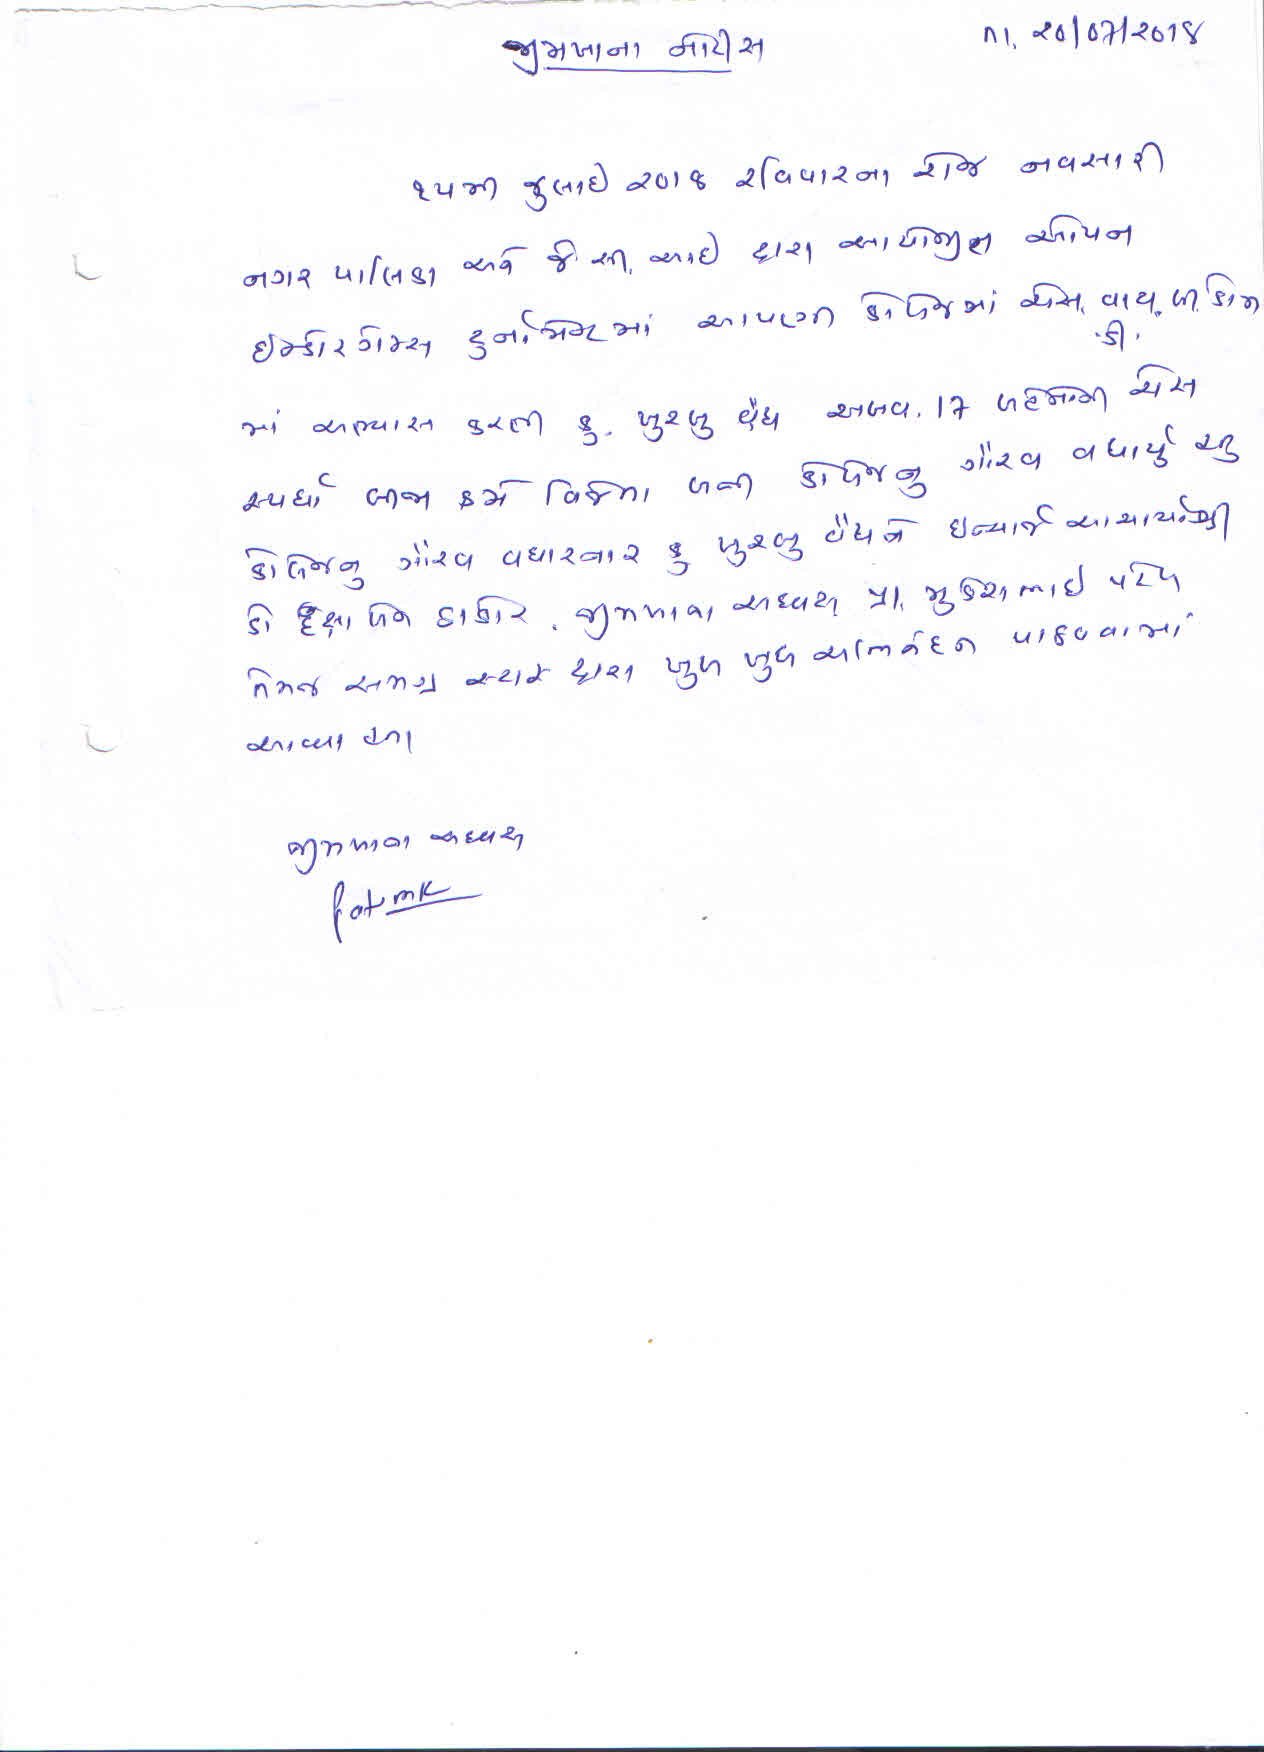 જીમખાના નોટીસ
તા. ૨૦/૦7/૨૦18
૧૫મી જુલાઈ ૨૦૧૮ રવિવારના રોજ નવસારી
નગર પાલિકા અને જે.સી. આઈ દ્વારા આયોજીત ઓપન
ઈન્ડોર ગેમ્સ ટુર્નામેન્ટમાં આપણી કોલેજમાં એસ. વાય. બી. કોમ
ડી.
માં અભ્યાસ કરતી કુ. ખુશ્બુ વૈદ્ય અબવ. 17 બહેનોની ચેસ
સ્પર્ધા બીજા ક્રમે વિજેતા બની કોલેજનુ ગૌરવ વધાર્યુ છે
કોલેજનુ ગૌરવ વધારનાર કુ ખુશ્બુ વૈદ્યને ઈન્ચાર્જ આચાર્યાશ્રી
ડો દક્ષાબેન ઠાકોર. જીમખાના અધ્યક્ષ પ્રા. મુકેશભાઈ પટેલ
તેમજ સમગ્ર સ્ટાફ દ્વારા ખુબ ખુબ અભિનંદન પાઠવવામાં
આવ્યા છે.
જીમખાના અધ્યક્ષ